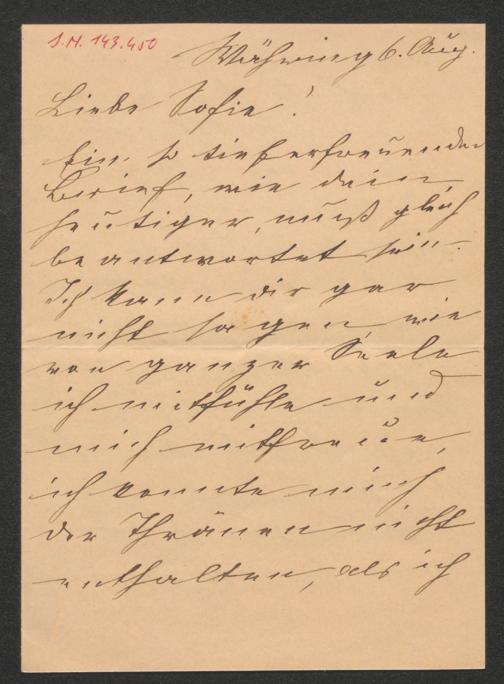 J.N. 143.450
Währing 6. Aug.
Liebe Sofie!
Ein so tieferfreuender
Brief, wie dein
heutiger, muß gleich
beantwortet sein.
Ich kann dir gar
nicht sagen, wie
von ganzer Seele
ich mitfühle und
mich mitfreue,
ich konnte mich
der Thränen nicht
enthalten, als ich